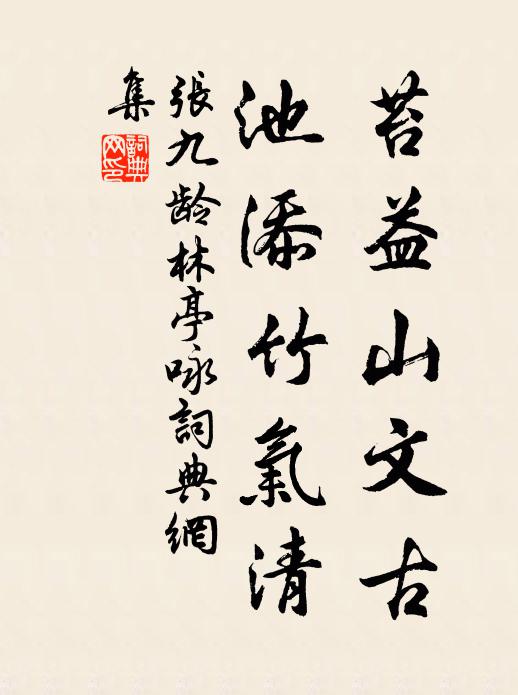 苔益山文古
池添竹氣清
張九龄林亭咏詞典網
集
詞典
网印